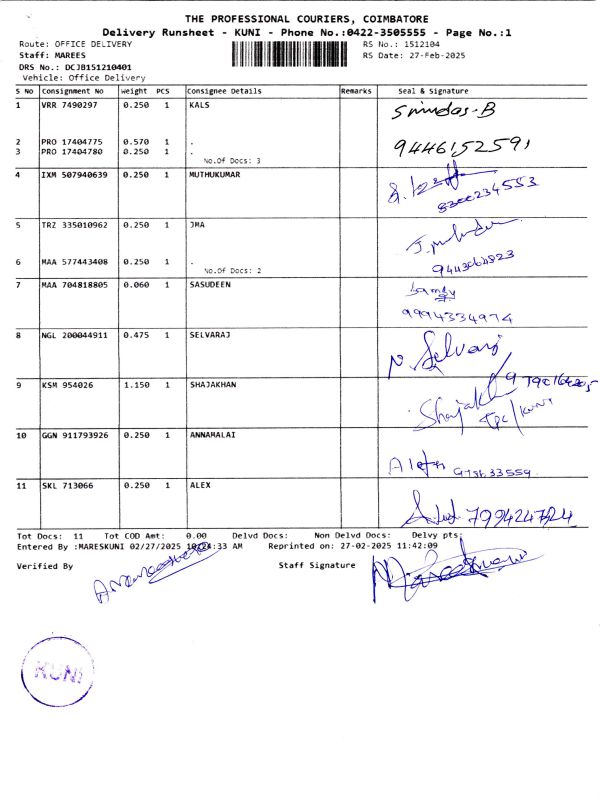 THE PROFESSIONAL COURIERS, COIMBATORE
Delivery Runsheet - KUNI - Phone No.:0422-3505555 - Page No.:1
Route: OFFICE DELIVERY RS No.: 1512104
Staff: MAREES RS Date: 27-Feb-2025
DRS No.: DCJB151210401
Vehicle: Office Delivery
S No Consignment No Weight PCS Consignee Details Remarks Seal & Signature
1 VRR 7490297 0.250 1 KALS
2 PRO 17404775 0.570 1 .
3 PRO 17404780 0.250 1 .
9446152591
No.Of Docs: 3
4 IXM 507940639 0.250 1 MUTHUKUMAR
8300234553
5 TRZ 335010962 0.250 1 JMA
6 MAA 577443408 0.250 1 .
No.Of Docs: 2
7 MAA 704818805 0.060 1 SASUDEEN
9994334974
8 NGL 200044911 0.475 1 SELVARAJ
N. Selvaraj
9 KSM 954026 1.150 1 SHAJAKHAN
10 GGN 911793926 0.250 1 ANNAMALAI
11 SKL 713066 0.250 1 ALEX
Tot Docs: 11 Tot COD Amt: 0.00 Delvd Docs: Non Delvd Docs: Delvy pts:
Entered By :MARESKUNI 02/27/2025 AM Reprinted on: 27-02-2025 11:42:09
Verified By Staff Signature
KUNI